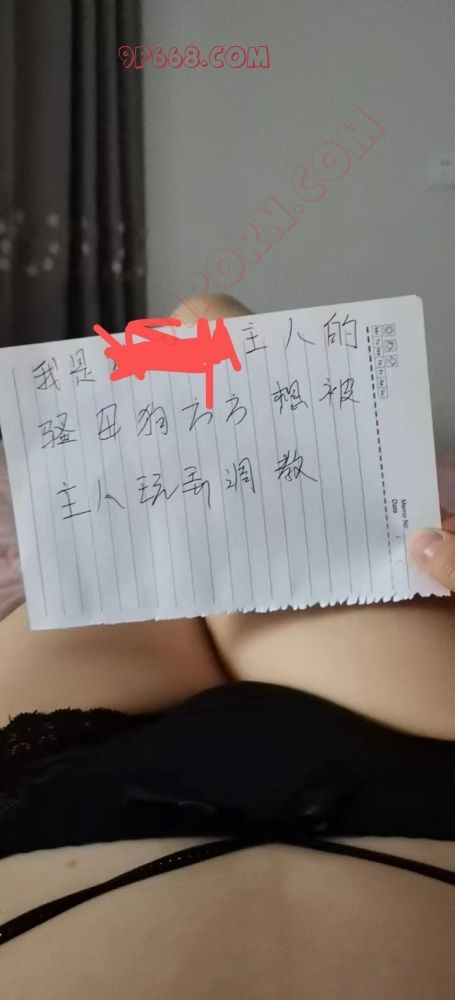 9P668.COM
PORN.COM
我是 主人的
骚母狗方方想被
主人玩弄调教
Memo No.
Date